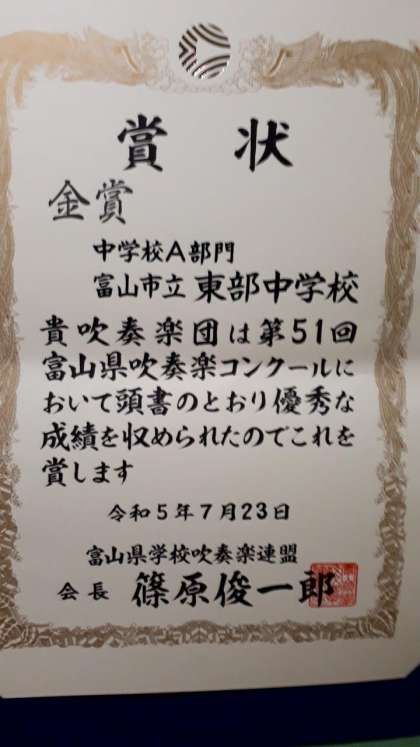 賞状
金賞
中学校A部門
富山市立 東部中学校
貴吹奏楽団は第51回
富山県吹奏楽コンクールに
おいて頭書のとおり優秀な
成績を収められたのでこれを
賞します
令和5年7月23日
富山県学校吹奏楽連盟
会長 篠原俊一郎